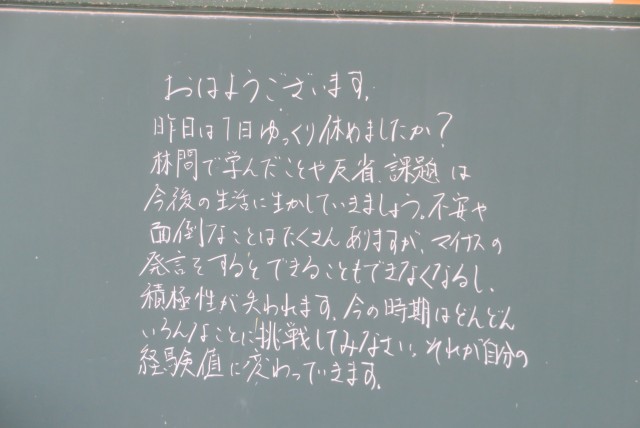 おはようございます。
昨日は1日ゆっくり休めましたか?
林間で学んだことや反省、課題は
今後の生活に生かしていきましょう。不安や
面倒なことはたくさんありますが、マイナスの
発言をするとできることもできなくなるし、
積極性が失われます。今の時期はどんどん
いろんなことに挑戦してみなさい。それが自分の
経験値に変わっていきます。